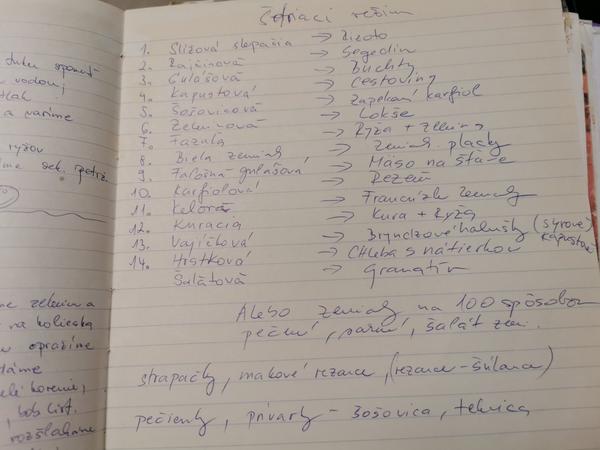 duku
vodou,
a varíme
ryžou
sek.
zeleninu a
na kolieska
opražíme
korenie,
bob. list.
rozšľaháme
režim
1. Slizová slepačia → Rizoto
2. Rajčinová → Segedin
3. Gulášová → Buchty
4. Kapustová → Cestoviny
5. Šošovicová → zapekaný karfiol
6. Zeleninová → Lokše
7. Fazuľa → Ryža + zelenina
8. Biela zemiak → zemiak. placky
9. Falošná gulášová → Mäso na šťave
10. Karfiolová → Rezeň
11. Kelová → Francúzke zemiaky
12. Kuracia → Kura + Ryža
13. Vajíčková → Bryndzové halušky (syrové
kapustové
14. Hrstková → Chleba s nátierkou
Šalátová → Granatír
Alebo zemiak na 100 spôsobov
pečení, varní, šalát zem.
strapačky, makové rezance, (rezance - šúľance)
pečienky, prívarky - šošovica, tekvica